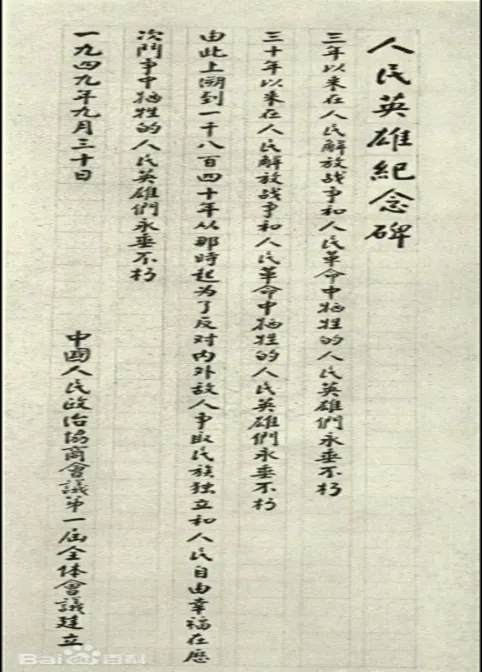 人民英雄紀念碑
三年以来在人民解放战争和人民革命中牺牲的人民英雄們永垂不朽
三十年以来在人民解放战争和人民革命中牺牲的人民英雄們永垂不朽
由此上溯到一千八百四十年从那時起为了反对内外敌人争取民族独立和人民自由幸福在歷
次鬥争中牺牲的人民英雄們永垂不朽
一九四九年九月三十日
中國人民政治協商會議第一屆全体會議建立
Bai百科